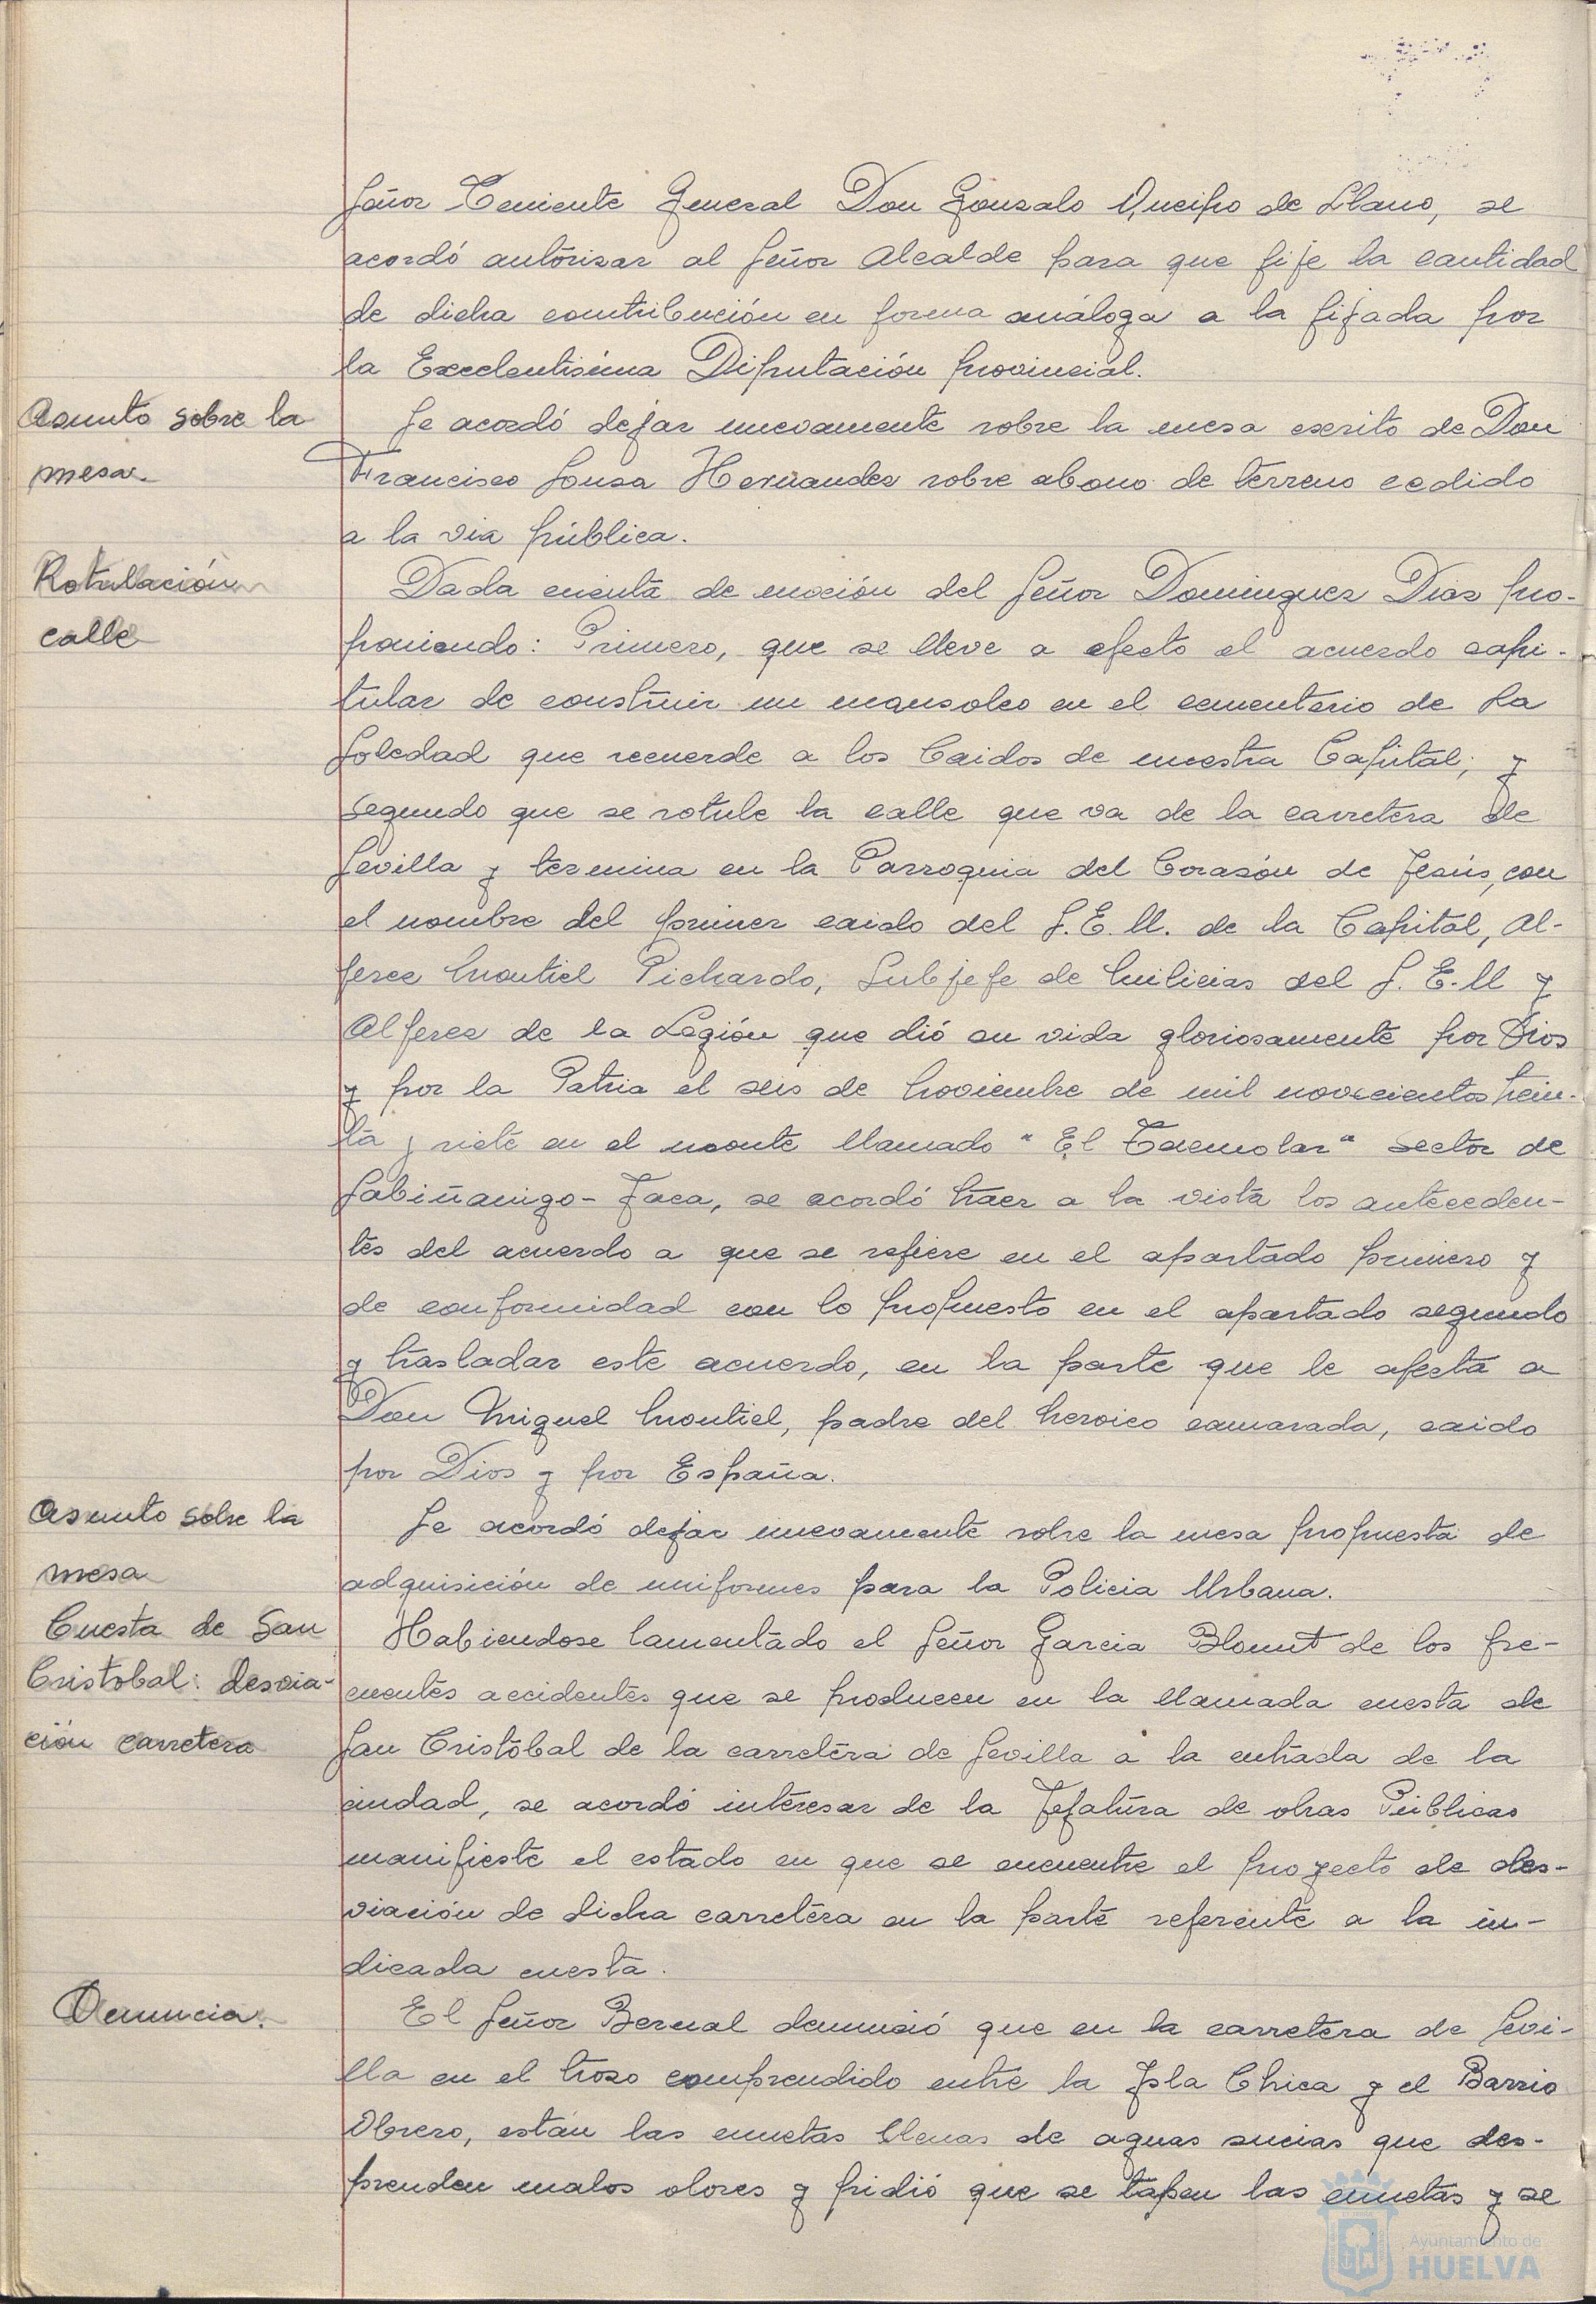 Señor Teniente General Don Gonzalo Queipo de Llano, se
acordó autorizar al Señor Alcalde para que fije la cantidad
de dicha contribución en forma análoga a la fijada por
la Excelentisima Diputación provincial.
Asunto sobre la
mesa.
Se acordó dejar nuevamente sobre la mesa escrito de Don
Francisco Sousa Hernandez sobre abono de terreno cedido
a la via pública.
Rotulación
calle
Dada cuenta de moción del Señor Dominguez Diaz pro-
poniendo: Primero, que se lleve a efecto el acuerdo capi-
tular de construir un mausoleo en el cementerio de La
Soledad que recuerde a los Caidos de nuestra Capital; y
segundo que se rotule la calle que va de la carretera de
Sevilla y termina en la Parroquia del Corazón de Jesús, con
el nombre del primer caido del S.E.U. de la Capital, Al-
ferez Montiel Pichardo, Subjefe de Milicias del S.E.U y
Alferez de la Legión que dió su vida gloriosamente por Dios
y por la Patria el seis de Noviembre de mil novecientos trein-
ta y siete en el monte llamado "El " sector de
Sabiñanigo-Jaca, se acordó traer a la vista los anteceden-
tes del acuerdo a que se refiere en el apartado primero y
de conformidad con lo propuesto en el apartado segundo
y trasladar este acuerdo, en la parte que le afecta a
Don Miguel Montiel, padre del heroico camarada, caido
por Dios y por España.
Asunto sobre la
mesa
Se acordó dejar nuevamente sobre la mesa propuesta de
adquisición de uniformes para la Policia Urbana.
Cuesta de San
Cristobal: desvia-
ción carretera
Habiendose lamentado el Señor Garcia Blount de los fre-
cuentes accidentes que se producen en la llamada cuesta de
San Cristóbal de la carretera de Sevilla a la entrada de la
ciudad, se acordó interesar de la Jefatura de obras Públicas
manifieste el estado en que se encuentre el proyecto de des-
viación de dicha carretera en la parte referente a la in-
dicada cuesta.
Denuncia.
El Señor Bernal denunció que en la carretera de Sevi-
lla en el trozo comprendido entre la Isla Chica y el Barrio
Obrero, están las cunetas llenas de aguas sucias que des-
prenden malos olores y pidió que se tapen las cunetas y se
Ayuntamiento de
HUELVA